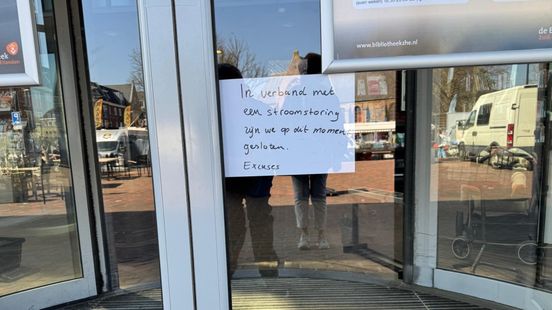 www.bibliotheekzhe.nl
de B
In verband met
een stroomstoring
zijn we op dit moment
gesloten.
Excuses